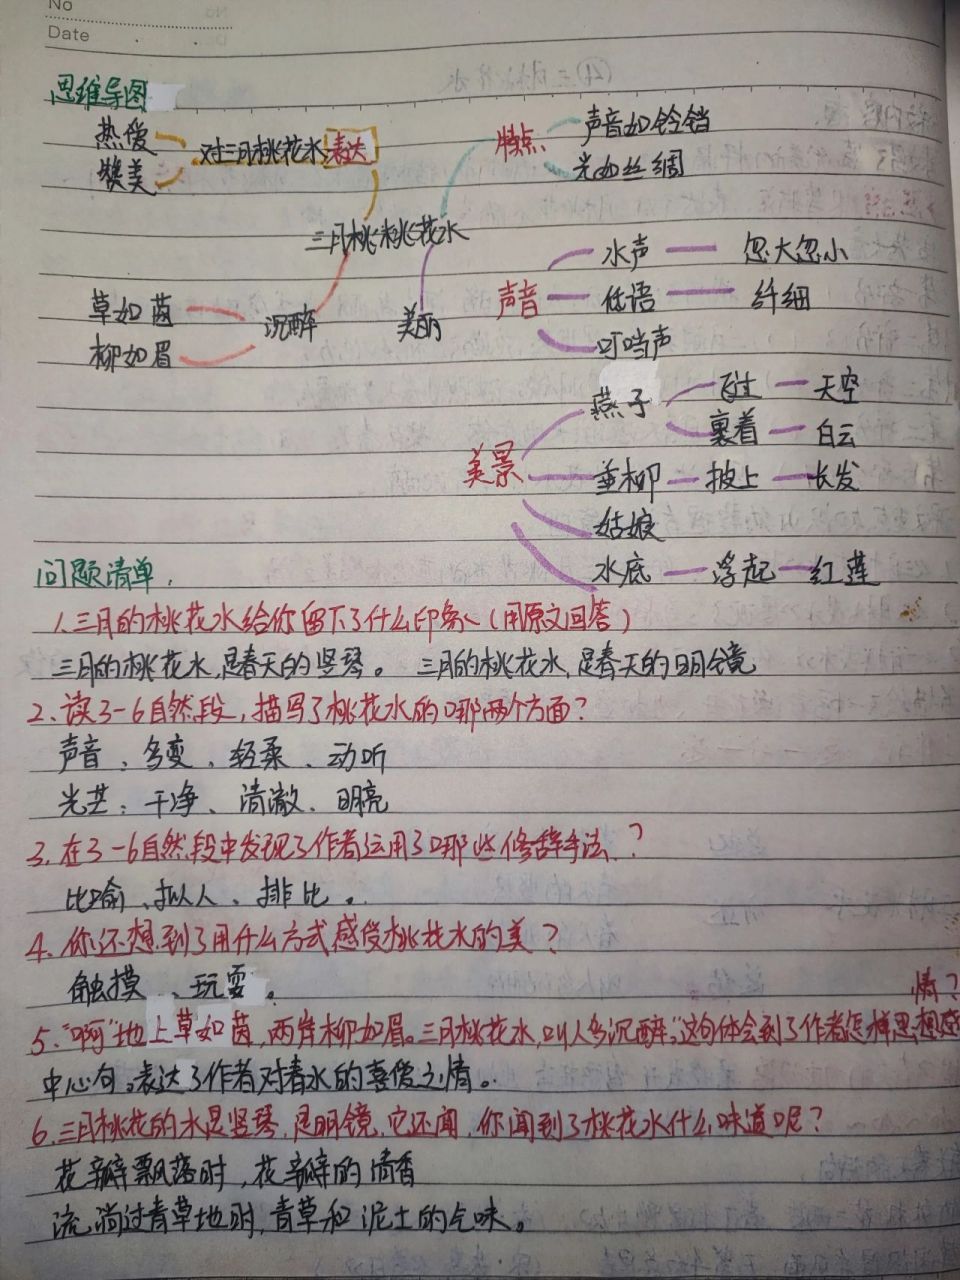 No
Date
思维导图
热爱 对三月桃花水表达 特点 声音如铃铛
赞美 光如丝绸
三月桃桃花水
水声 忽大忽小
草如茵 沉醉 美丽 声音 低语 纤细
柳如眉 叮当声
燕子 飞过 天空
裹着 白云
美景 垂柳 披上 长发
姑娘
水底 浮起 红莲
问题清单.
1.三月的桃花水给你留下了什么印象(用原文回答)
三月的桃花水,是春天的竖琴。 三月的桃花水,是春天的明镜
2.读3-6自然段,描写了桃花水的哪两个方面?
声音:多变、轻柔、动听
光芒:干净、清澈、明亮
3.在3-6自然段中发现了作者运用了哪些修辞手法.?
比喻、拟人、排比。
4.你还想到了用什么方式感受桃花水的美?
触摸、玩耍。
5."啊"地上草如茵,两岸柳如眉。三月桃花水,叫人多沉醉。"这句体会到了作者怎样思想感
情?
中心句。表达了作者对春水的喜爱之情。
6.三月桃花的水是竖琴,是明镜,它还闻,你闻到了桃花水什么味道呢?
花瓣飘落时,花瓣的清香
流淌过青草地时,青草和泥土的气味。